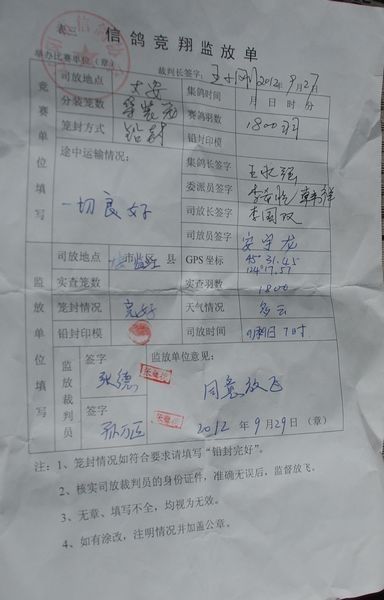 表三
信鸽竞翔监放单
举办比赛单位(章) 裁判长签字: 2012年9月27
竞赛单位填写
司放地点 大安 集鸽时间 月 日 时 分
分装笼数 赛鸽羽数 1800羽
笼封方式 铅封 铅封印模
途中运输情况: 一切良好
集鸽长签字 王永强
委派员签字
司放长签字 李国双
司放员签字 安守龙
监放单位填写
司放地点 市 县 GPS坐标 45°31.45 124°17.57
实查笼数 实查羽数 1800
笼封情况 完好 天气情况 多云
铅封印模 司放时间 7时
监放裁判员
签字 张德
监放单位意见:
同意放飞
签字
2012年9月29日(章)
注:1、笼封情况如符合要求请填写“铅封完好”。
2、核实司放裁判员的身份证件,准确无误后,监督放飞。
3、无章、填写不全,均视为无效。
4、如有涂改,注明情况并加盖公章。